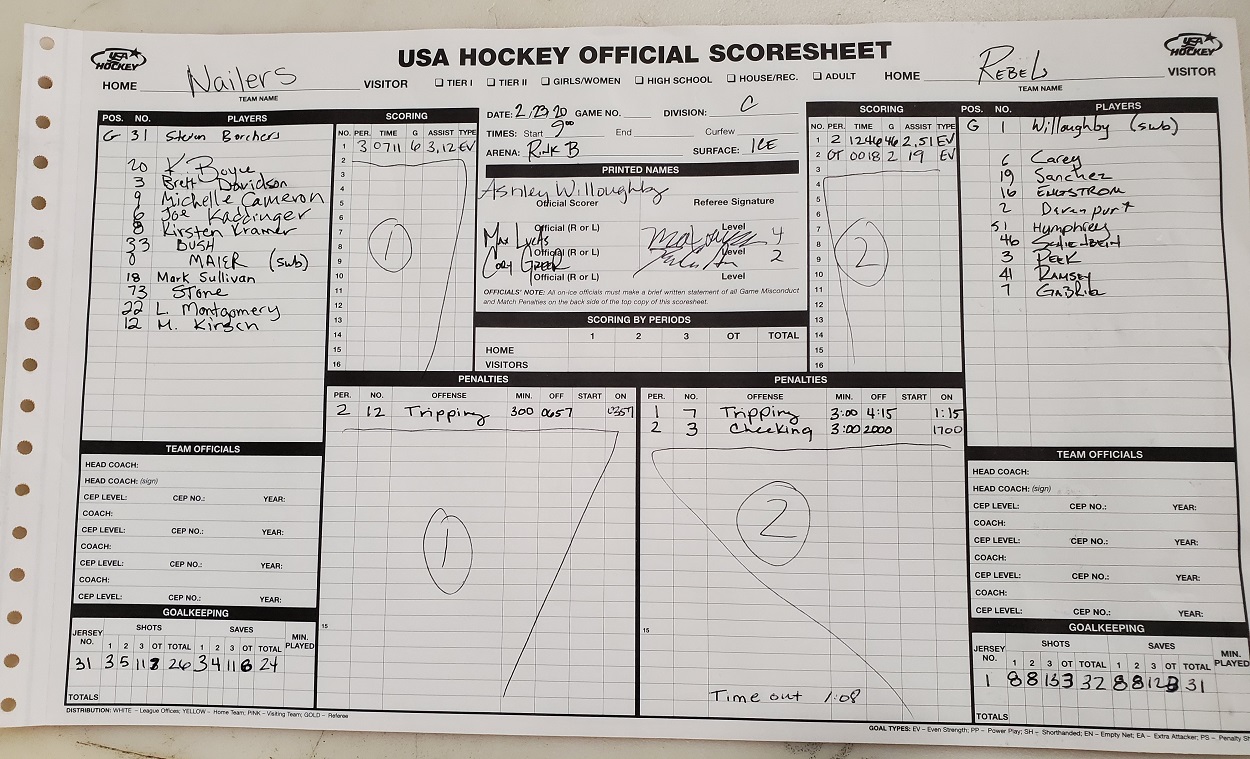 USA HOCKEY OFFICIAL SCORESHEET
USA HOCKEY
HOME Nailers VISITOR
TEAM NAME
☐ TIER I ☐ TIER II ☐ GIRLS/WOMEN ☐ HIGH SCHOOL ☐ HOUSE/REC. ☐ ADULT
USA HOCKEY
HOME REBELS VISITOR
TEAM NAME
POS. NO. PLAYERS
G 31 Steven Borchers
20 K. Boyce
3 Brett Davidson
9 Michelle Cameron
6 Joe Kaddinger
8 Kirsten Kramer
33 BUSH
MAIER (sub)
18 Mark Sullivan
73 Stone
22 L. Montgomery
12 M. Kirsch
SCORING
NO. PER. TIME G ASSIST TYPE
1 3 0711 6 3,12 EV
2
3
4
5
6
7
8
9
10
11
12
13
14
15
16
1
DATE: 2/23/20 GAME NO. DIVISION: C
TIMES: Start 9:00 End Curfew
ARENA: RINK B SURFACE: ICE
PRINTED NAMES
Ashley Willoughby
Official Scorer Referee Signature
Official (R or L) Level 4
Max
Official (R or L) Level 2
Cory
Official (R or L) Level
OFFICIALS' NOTE: All on-ice officials must make a brief written statement of all Game Misconduct
and Match Penalties on the back side of the top copy of this scoresheet.
SCORING BY PERIODS
1 2 3 OT TOTAL
HOME
VISITORS
SCORING
NO. PER. TIME G ASSIST TYPE
1 2 1246 46 2,51 EV
2 OT 0018 2 19 EV
3
4
5
6
7
8
9
10
11
12
13
14
15
16
2
POS. NO. PLAYERS
G 1 Willoughby (sub)
6 Carey
19 Sanchez
16 ENGSTROM
2 Davenport
51 Humphrey
46
3 PEEK
41 RAMSEY
7 GABRIEL
PENALTIES
PER. NO. OFFENSE MIN. OFF START ON
2 12 Tripping 300 0657 0357
1
15
PENALTIES
PER. NO. OFFENSE MIN. OFF START ON
1 7 Tripping 3:00 4:15 1:15
2 3 Checking 3:00 2000 1700
2
15
Time out 1:08
TEAM OFFICIALS
HEAD COACH:
HEAD COACH: (sign)
CEP LEVEL: CEP NO.: YEAR:
COACH:
CEP LEVEL: CEP NO.: YEAR:
COACH:
CEP LEVEL: CEP NO.: YEAR:
COACH:
CEP LEVEL: CEP NO.: YEAR:
GOALKEEPING
JERSEY NO. SHOTS SAVES MIN. PLAYED
1 2 3 OT TOTAL 1 2 3 OT TOTAL
31 3 5 11 7 26 3 4 11 6 24
TOTALS
TEAM OFFICIALS
HEAD COACH:
HEAD COACH: (sign)
CEP LEVEL: CEP NO.: YEAR:
COACH:
CEP LEVEL: CEP NO.: YEAR:
COACH:
CEP LEVEL: CEP NO.: YEAR:
COACH:
CEP LEVEL: CEP NO.: YEAR:
GOALKEEPING
JERSEY NO. SHOTS SAVES MIN. PLAYED
1 2 3 OT TOTAL 1 2 3 OT TOTAL
1 8 8 13 3 32 8 8 12 3 31
TOTALS
DISTRIBUTION: WHITE – League Offices; YELLOW – Home Team; PINK – Visiting Team; GOLD – Referee
GOAL TYPES: EV – Even Strength; PP – Power Play; SH – Shorthanded; EN – Empty Net; EA – Extra Attacker; PS – Penalty